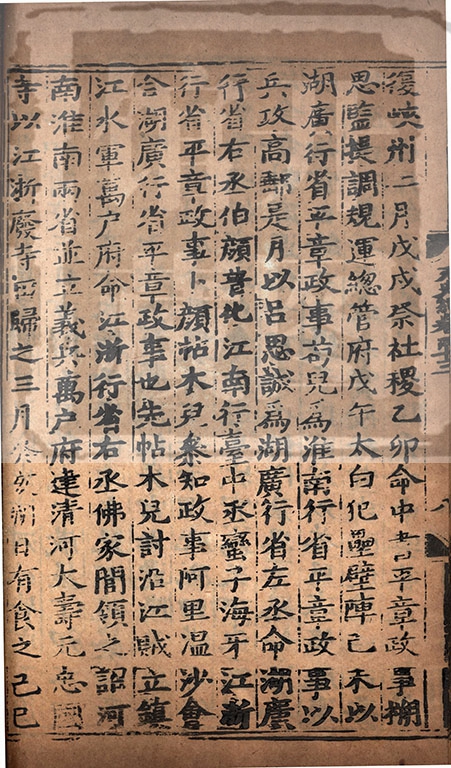 復峽州二月戊戌祭社稷乙卯命中書平章政事搠
思監提調規運總管府戊午太白犯壘壁陣己未以
湖廣行省平章政事苟兒爲淮南行省平章政事以
兵攻高郵是月以呂思誠爲湖廣行省左丞命湖廣
行省右丞伯顔普化江南行臺中丞蠻子海牙江浙
行省平章政事卜顔帖木兒叅知政事阿里溫沙會
合湖廣行省平章政事也先帖木兒討沿江賊立鎮
江水軍萬户府命江浙行省右丞佛家閭領之詔河
南淮南兩省並立義兵萬户府建清河大壽元忠國
寺以江浙廢寺田歸之三月癸亥朔日有食之己巳